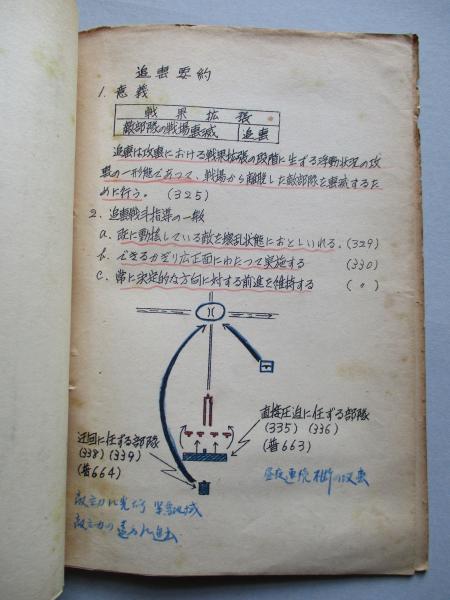 追撃要約
1. 意義
戦果拡張
敵部隊の戦場撃滅 追撃
追撃は攻撃における戦果拡張の段階に生ずる浮動状況の攻
撃の一形態であつて、戦場から離脱した敵部隊を撃滅するた
めに行う。 (325)
2. 追撃戦斗指導の一般
a. 既に動揺している敵を壊乱状態におとしいれる。(329)
b. できるかぎり広正面にわたつて実施する (330)
c. 常に決定的な方向に対する前進を維持する (〃)
直接圧迫に任ずる部隊
(335) (336)
(普663)
迂回に任ずる部隊
(338) (339)
(普664)
昼夜連続 の攻撃
敵主力に先行
敵主力の 進出